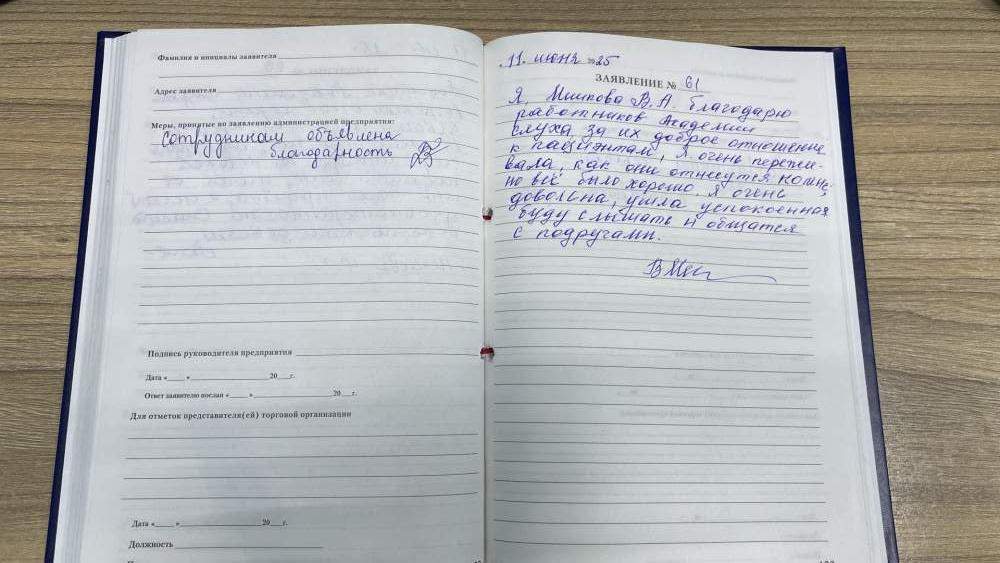 Фамилия и инициалы заявителя
Адрес заявителя
Меры, принятые по заявлению администрацией предприятия:
сотрудникам объявлена
благодарность
Подпись руководителя предприятия
Дата «___» ___ 20__г.
Ответ заявителю послан «___» ___ 20__г.
Для отметок представителя(ей) торговой организации
Дата «___» ___ 20__г.
Должность
11 июня 2025
ЗАЯВЛЕНИЕ № 61
Я, Мишкова В.А. благодарю
работников Академии
слуха за их доброе отношение
к пациентам, я очень пережи-
вала, как они отнесутся ко мне,
но всё было хорошо. Я очень
довольна, ушла успокоенная
буду слышать и общатся
с подругами.